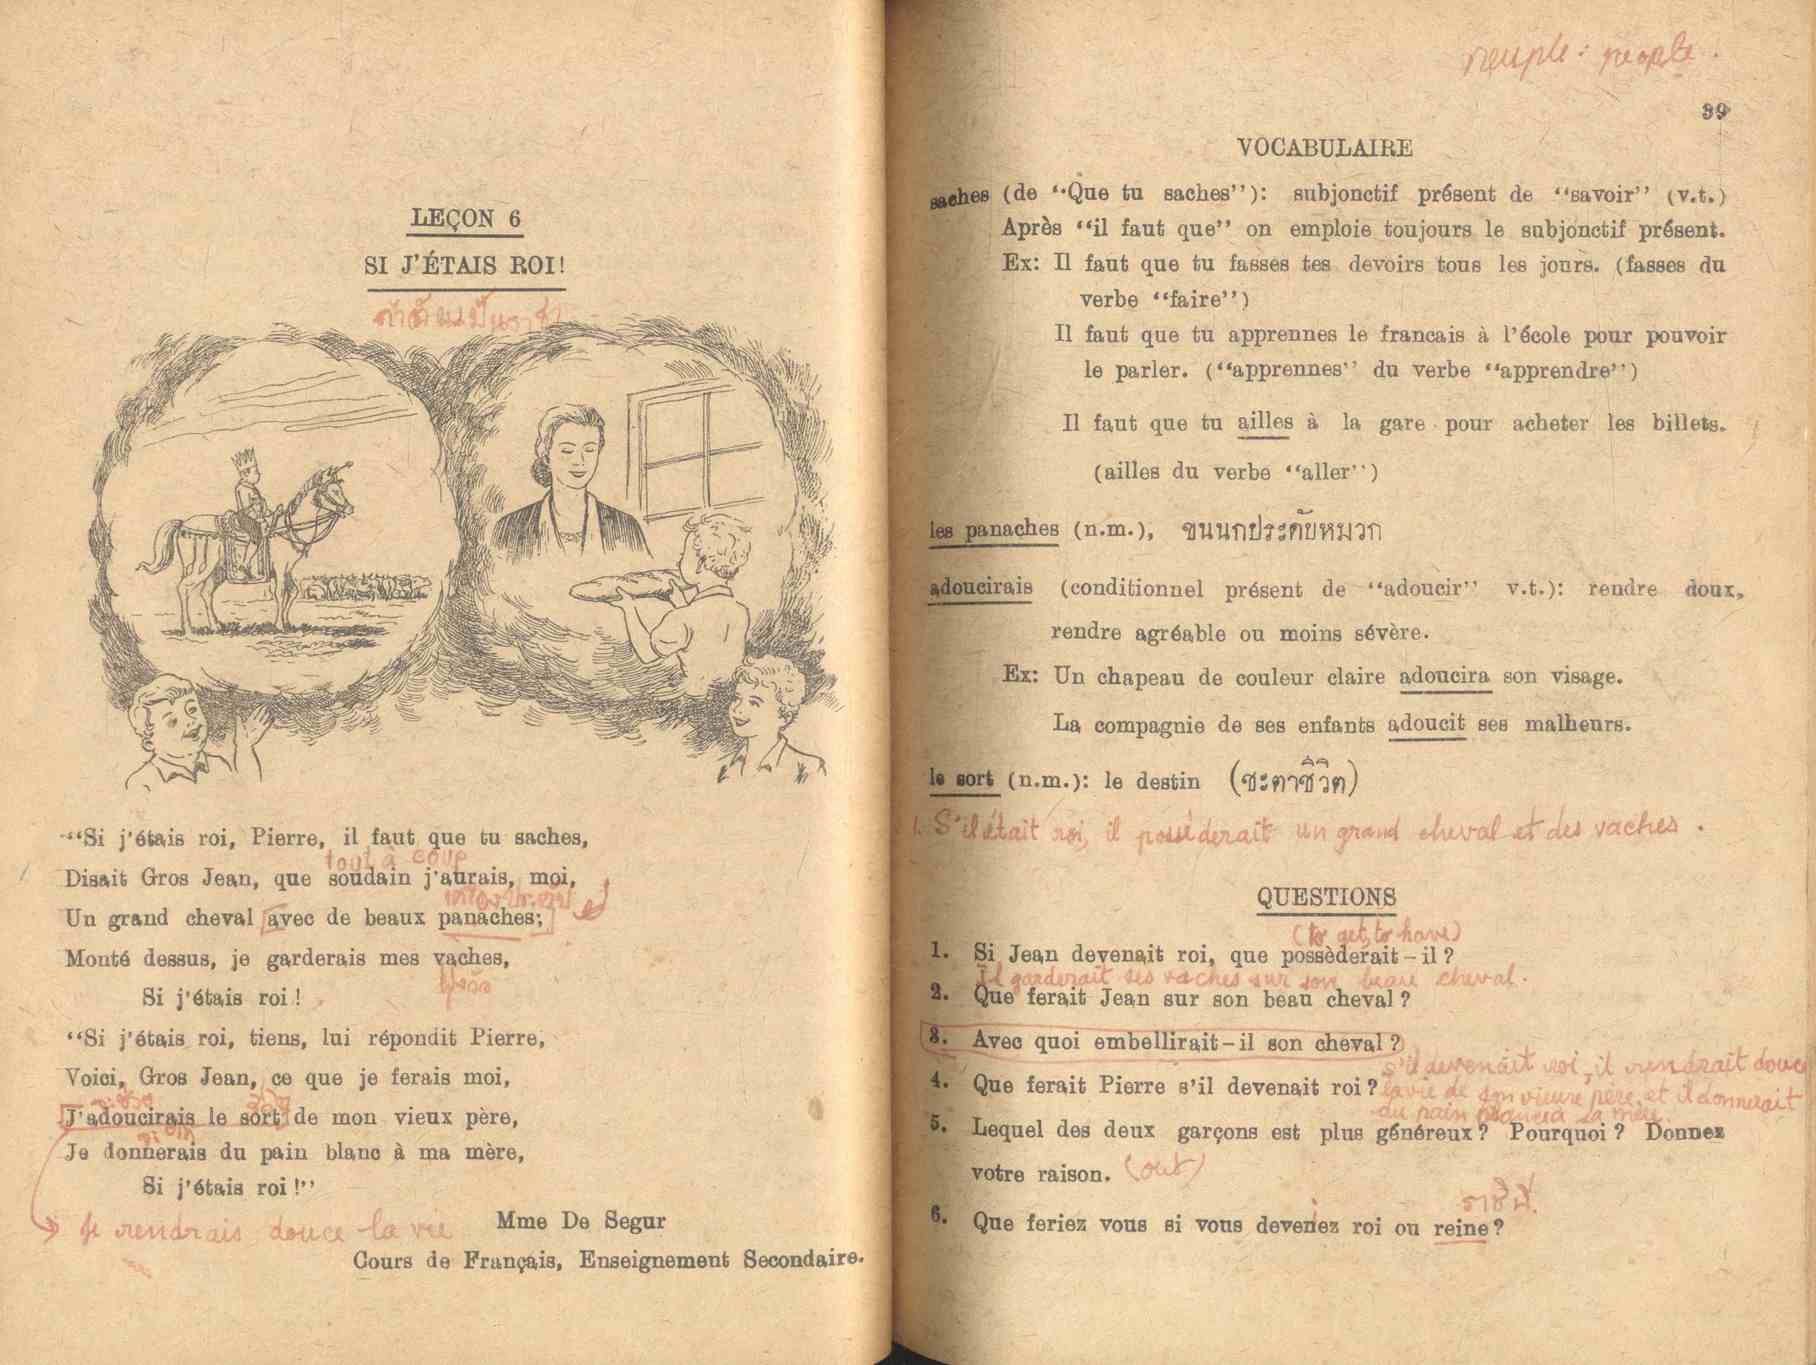 LEÇON 6
SI J'ÉTAIS ROI!
ถ้าฉันเป็นราชา
"Si j'étais roi, Pierre, il faut que tu saches,
tout à coup
Disait Gros Jean, que soudain j'aurais, moi,
Un grand cheval avec de beaux panaches;
Monté dessus, je garderais mes vaches,
Si j'étais roi!
"Si j'étais roi, tiens, lui répondit Pierre,
Voici, Gros Jean, ce que je ferais moi,
J'adoucirais le sort de mon vieux père,
Je donnerais du pain blanc à ma mère,
Si j'étais roi!"
Je rendrais douce la vie
Mme De Segur
Cours de Français, Enseignement Secondaire.
peuple : people.
39
VOCABULAIRE
saches (de "Que tu saches"): subjonctif présent de "savoir" (v.t.)
Après "il faut que" on emploie toujours le subjonctif présent.
Ex: Il faut que tu fasses tes devoirs tous les jours. (fasses du
verbe "faire")
Il faut que tu apprennes le francais à l'école pour pouvoir
le parler. ("apprennes" du verbe "apprendre")
Il faut que tu ailles à la gare pour acheter les billets.
(ailles du verbe "aller")
les panaches (n.m.), ขนนกประดับหมวก
adoucirais (conditionnel présent de "adoucir" v.t.): rendre doux,
rendre agréable ou moins sévère.
Ex: Un chapeau de couleur claire adoucira son visage.
La compagnie de ses enfants adoucit ses malheurs.
le sort (n.m.): le destin (ชะตาชีวิต)
1. S'il était roi, il possèderait un grand cheval et des vaches.
QUESTIONS
(to get, to have)
1. Si Jean devenait roi, que possèderait-il?
Il garderait ses vaches sur son beau cheval.
2. Que ferait Jean sur son beau cheval?
3. Avec quoi embellirait-il son cheval?
s'il devenait roi, il rendrait douce
4. Que ferait Pierre s'il devenait roi?
la vie de son vieux père, et il donnerait
du pain blanc à sa mère.
5. Lequel des deux garçons est plus généreux? Pourquoi? Donnez
votre raison. (out)
ราชินี
6. Que feriez vous si vous devenez roi ou reine?